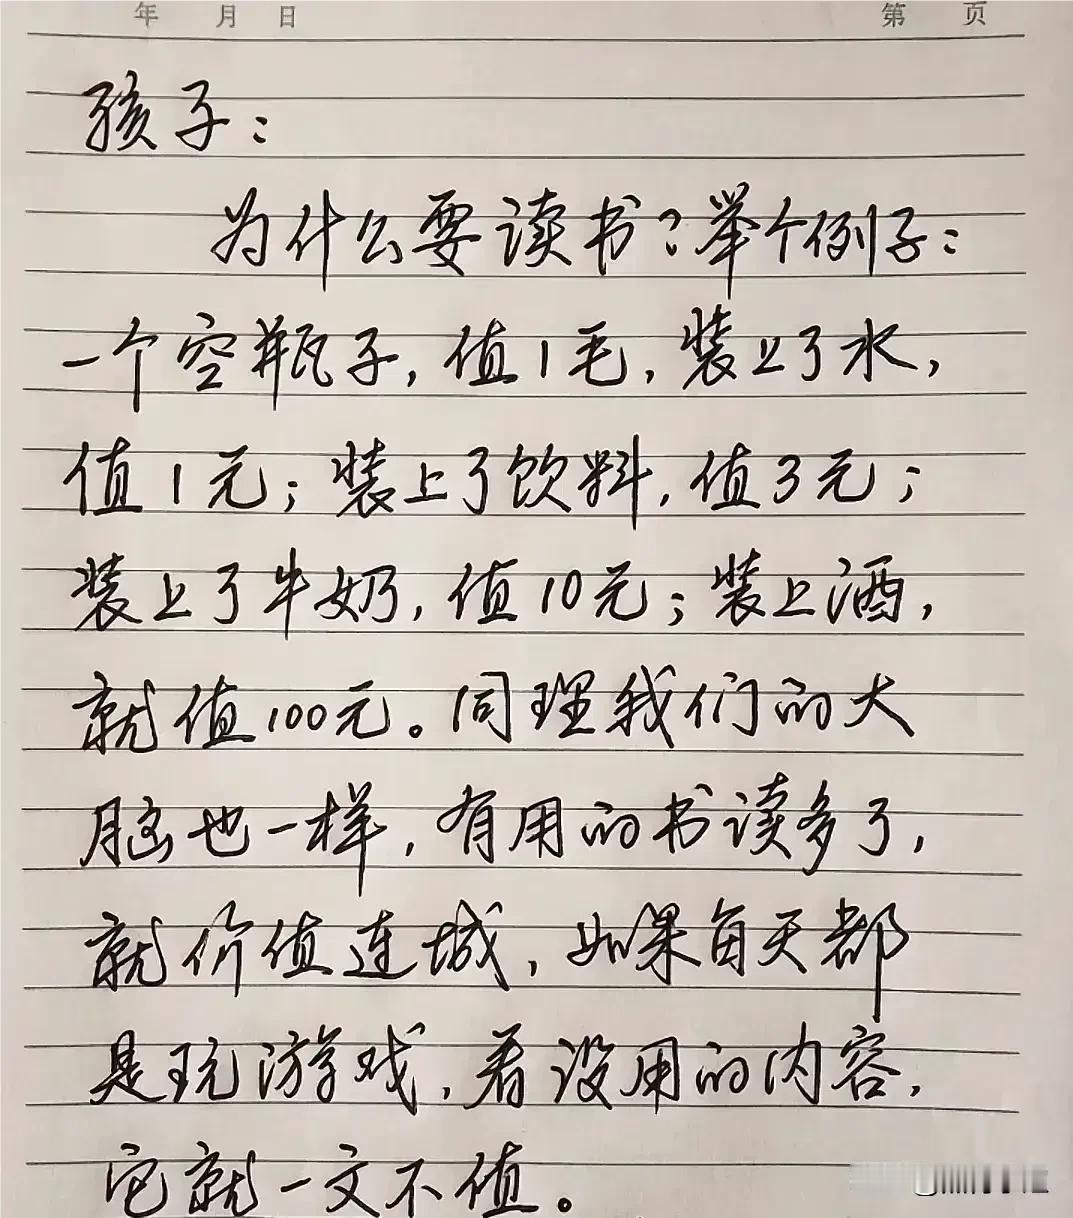 年 月 日 第 页
孩子：
为什么要读书？举个例子：
一个空瓶子，值1毛，装上了水，
值1元；装上了饮料，值3元；
装上了牛奶，值10元；装上酒，
就值100元。同理我们的大
脑也一样，有用的书读多了，
就价值连城，如果每天都
是玩游戏，看没用的内容，
它就一文不值。